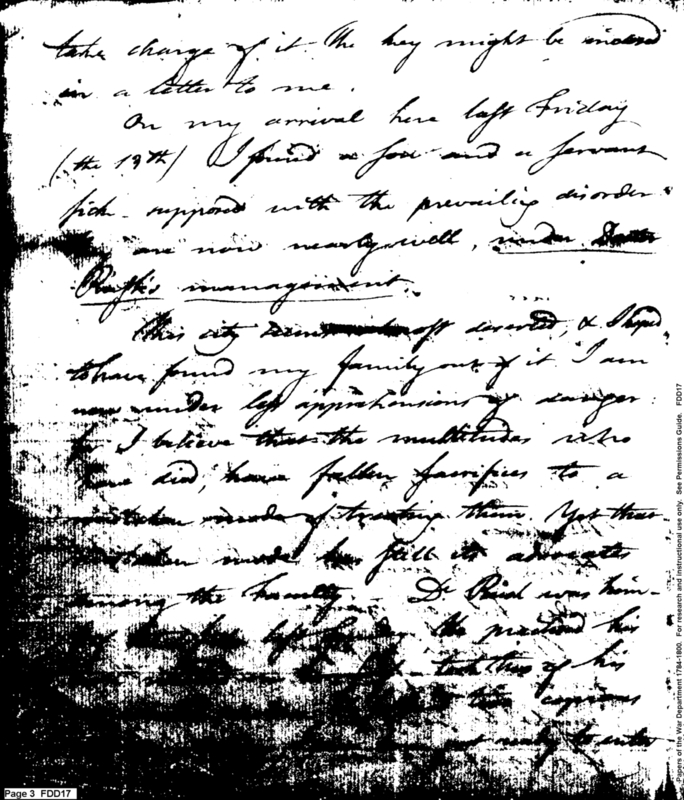 take charge of it. The key might be inclosed
in a letter to me.
On my arrival here last Friday
(the 13th) I found a son and a servant
sick - supposed with the prevailing disorder.
are now nearly well, under Doctor
Rush's management.
This city seems almost deserted, & I hoped
to have found my family out of it. I am
now under less apprehensions of danger:
for I believe that the multitudes who
have died, have fallen sacrifices to a
mistaken mode of treating them. Yet that
mistaken mode has still its advocates
among the faculty. Dr Rush was him-
last He practised his
took two of his
two copious
not ready to enter
Page 3 FDD17
Papers of the War Department 1784-1800. For research and instructional use only. See Permissions Guide. FDD17